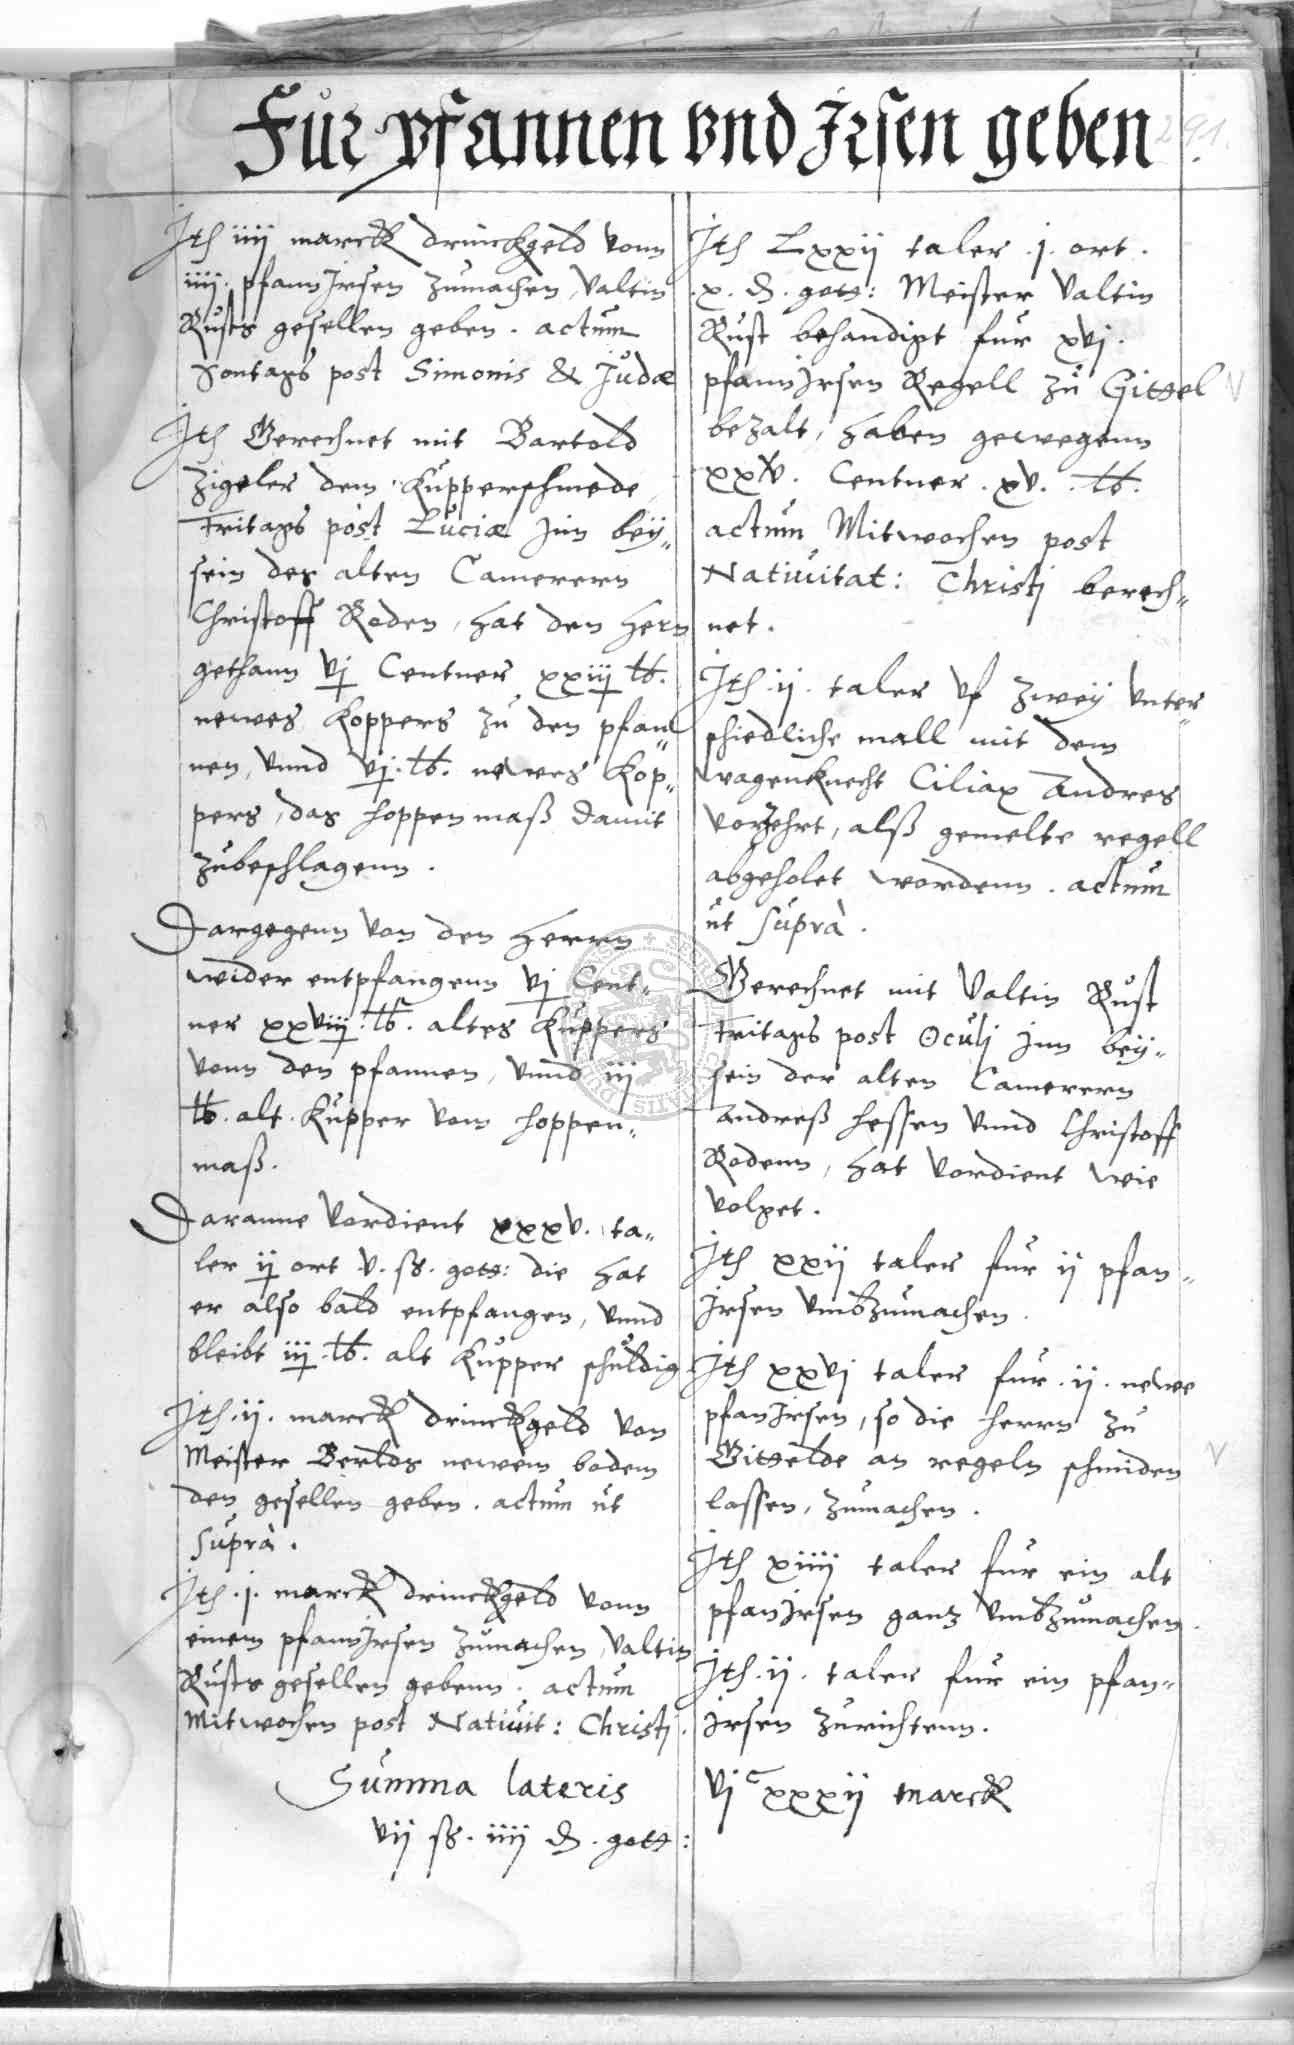 Fur pfannen vnd Irsen geben
291.
Ith iiij marck drinckgeld vonn
iiij. pfannJrsen zumachen, Valtin
Rusts gesellen geben. actum
Sontags post Simonis & Judæ
Ith Gerechnet mit Bartold
Zigeler dem Kupperschmede,
Fritags post Luciæ Jnn bey„
sein des alten Camerern
Christoff Roden, hat den Hern
gethann vj Centner xxiij lb.
newes Koppers zu den pfan„
nen, vnnd vj. lb. newes Kop„
pers, das hoppenmaß damit
zubeschlagenn.
Dargegenn von den Herrn
wider entpfangenn vj Cent„
ner xxviij. lb. altes Kuppers
vonn den pfannen, vnnd iij
lb. alt. Kupper vom hoppen„
maß.
Daranne vordient xxxv. ta„
ler ij ort v. ß. gott: die hat
er also bald entpfangen, vnnd
bleibt iij. lb. alt Kupper schuldig
Ith. ij. marck drinckgeld von
Meister Bertlds newem bodem
den gesellen geben. actum ut
suprà.
Ith. j. marck drinckgeld vonn
einem pfannJrsen zumachen, Valtin
Rusts gesellen gebenn. actum
Mitwochen post Nativit: Christj.
Ith Lxxij taler. j. ort.
x. d. gott: Meister Valtin
Rust behandigt fur xvj.
pfannJrsen Regell zu Gittel
bezalt, haben gewegenn
xxv. Centner. xv. lb.
actum Mitwochen post
Nativitat: Christj berech„
net.
Ith. ij. taler vf zwey vnter„
schiedliche mall mit dem
wagenknecht Ciliax Andres
vorzehrt, alß gemelte regell
abgeholet wordenn. actum
ut suprà.
Gerechnet mit Valtin Rust
Fritags post Oculj Jnn bey„
sein der alten Camerern
Andreß Hessen vnnd Christoff
Rodenn, hat vordient wie
volget.
Ith xxij taler fur ij pfan„
Jrsen vmbzumachen.
Ith xxvj taler fur. ij. newe
pfanJrsen, so die Herrn zu
Gittelde an regeln schmiden
lassen, zumachen.
Ith xiiij taler fur ein alt
pfanJrsen gantz vmbzumachen.
Ith. ij. taler fur ein pfan„
Jrsen zurichtenn.
Summa lateris vjc xxxij marck
vij ß. iiij d. gott: